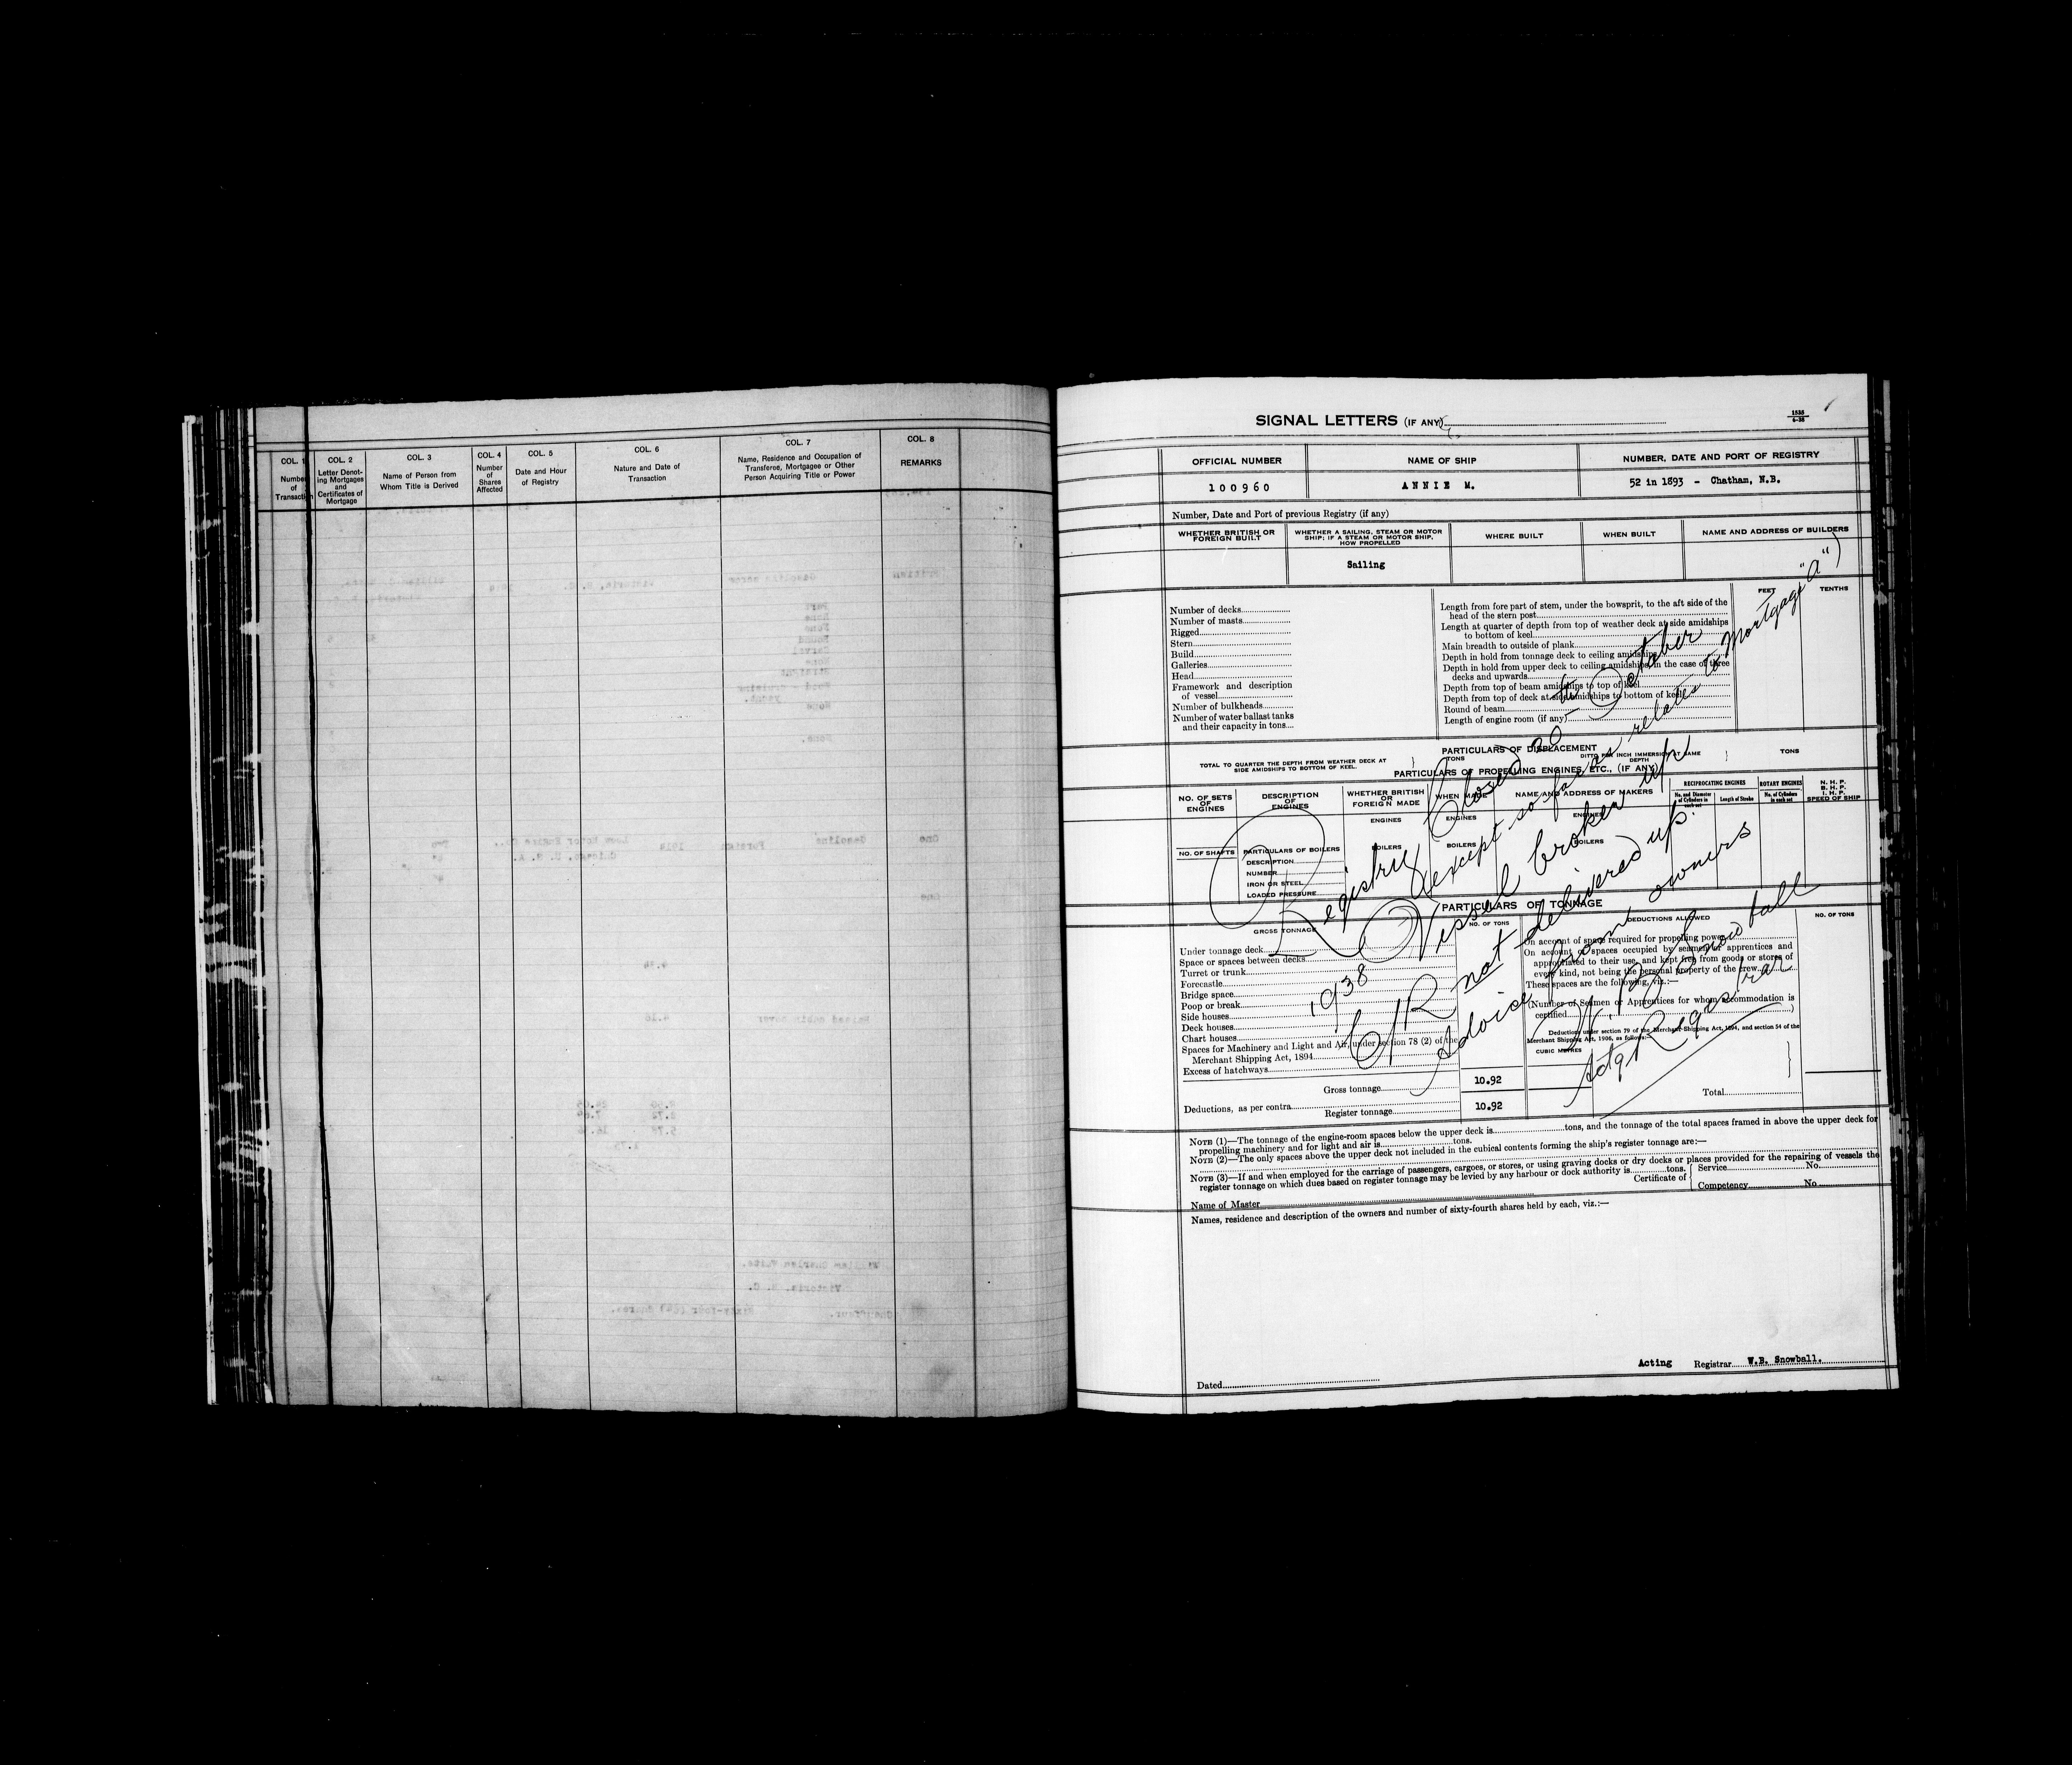 COL. 1
Number
of
Transaction
COL. 2
Letter Denot-
ing Mortgages
and
Certificates of
Mortgage
COL. 3
Name of Person from
Whom Title is Derived
COL. 4
Number
of
Shares
Affected
COL. 5
Date and Hour
of Registry
COL. 6
Nature and Date of
Transaction
COL. 7
Name, Residence and Occupation of
Transferee, Mortgagee or Other
Person Acquiring Title or Power
COL. 8
REMARKS
SIGNAL LETTERS (IF ANY)
1535
6-38
OFFICIAL NUMBER
NAME OF SHIP
NUMBER, DATE AND PORT OF REGISTRY
100960
ANNIE M.
52 in 1893 - Chatham, N.B.
Number, Date and Port of previous Registry (if any)
WHETHER BRITISH OR
FOREIGN BUILT
WHETHER A SAILING, STEAM OR MOTOR
SHIP; IF A STEAM OR MOTOR SHIP,
HOW PROPELLED
WHERE BUILT
WHEN BUILT
NAME AND ADDRESS OF BUILDERS
Sailing
Number of decks
Number of masts
Rigged
Stern
Build
Galleries
Head
Framework and description
of vessel
Number of bulkheads
Number of water ballast tanks
and their capacity in tons
FEET
TENTHS
Length from fore part of stem, under the bowsprit, to the aft side of the
head of the stern post
Length at quarter of depth from top of weather deck at side amidships
to bottom of keel
Main breadth to outside of plank
Depth in hold from tonnage deck to ceiling amidships
Depth in hold from upper deck to ceiling amidships, in the case of three
decks and upwards
Depth from top of beam amidships to top of keel
Depth from top of deck at side amidships to bottom of keel
Round of beam
Length of engine room (if any)
PARTICULARS OF DISPLACEMENT
TOTAL TO QUARTER THE DEPTH FROM WEATHER DECK AT
SIDE AMIDSHIPS TO BOTTOM OF KEEL.
TONS
DITTO PER INCH IMMERSION AT SAME
DEPTH
TONS
PARTICULARS OF PROPELLING ENGINES, ETC., (IF ANY)
NO. OF SETS
OF
ENGINES
DESCRIPTION
OF
ENGINES
WHETHER BRITISH
OR
FOREIGN MADE
WHEN MADE
NAME AND ADDRESS OF MAKERS
RECIPROCATING ENGINES
No. and Diameter
of Cylinders in
each set
Length of Stroke
ROTARY ENGINES
No. of Cylinders
in each set
N. H. P.
B. H. P.
I. H. P.
SPEED OF SHIP
ENGINES
ENGINES
ENGINES
NO. OF SHAFTS
PARTICULARS OF BOILERS
DESCRIPTION
NUMBER
IRON OR STEEL
LOADED PRESSURE
BOILERS
BOILERS
BOILERS
PARTICULARS OF TONNAGE
GROSS TONNAGE
NO. OF TONS
DEDUCTIONS ALLOWED
NO. OF TONS
Under tonnage deck
Space or spaces between decks
Turret or trunk
Forecastle
Bridge space
Poop or break
Side houses
Deck houses
Chart houses
Spaces for Machinery and Light and Air, under section 78 (2) of the
Merchant Shipping Act, 1894
Excess of hatchways
Gross tonnage
10.92
Deductions, as per contra
Register tonnage
10.92
On account of space required for propelling power
On account of spaces occupied by seamen or apprentices and
appropriated to their use, and kept free from goods or stores of
every kind, not being the personal property of the crew
These spaces are the following, viz.:—
(Number of Seamen or Apprentices for whom accommodation is
certified)
Deductions under section 79 of the Merchant Shipping Act, 1894, and section 54 of the
Merchant Shipping Act, 1906, as follows:—
CUBIC METRES
Total
Registry Closed 20th October
1938
(except so far as relates to Mortgage "a")
Vessel broken up
C/R not delivered up.
Advice from owners
W. B. Snowball
Actg Registrar
NOTE (1)—The tonnage of the engine-room spaces below the upper deck is tons, and the tonnage of the total spaces framed in above the upper deck for
propelling machinery and for light and air is tons.
NOTE (2)—The only spaces above the upper deck not included in the cubical contents forming the ship's register tonnage are:—
NOTE (3)—If and when employed for the carriage of passengers, cargoes, or stores, or using graving docks or dry docks or places provided for the repairing of vessels the
register tonnage on which dues based on register tonnage may be levied by any harbour or dock authority is tons.
Certificate of { Service No.
Competency No
Name of Master
Names, residence and description of the owners and number of sixty-fourth shares held by each, viz.:—
Acting Registrar W.B. Snowball.
Dated